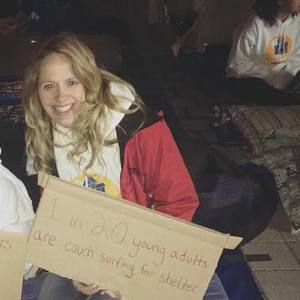 1 in 20 young adults
are couch surfing for shelter